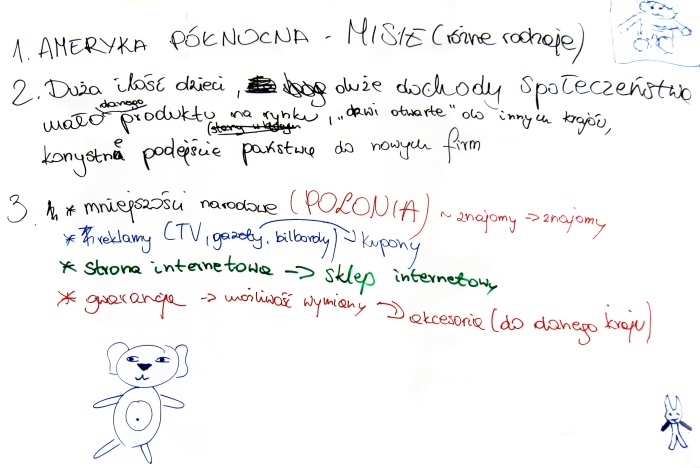 1. AMERYKA PÓŁNOCNA - MISIE (różne rodzaje)
2. Duża ilość dzieci, duże dochody społeczeństwa
mało danego produktu na rynku, „drzwi otwarte" do innych krajów,
korzystne podejście państwa do nowych firm
3. * mniejszości narodowe (POLONIA) ~ znajomy -> znajomy
* reklamy (TV, gazety, bilbordy) -> kupony
* strona internetowa -> sklep internetowy
* gwarancja -> możliwość wymiany -> akcesoria (do danego kraju)